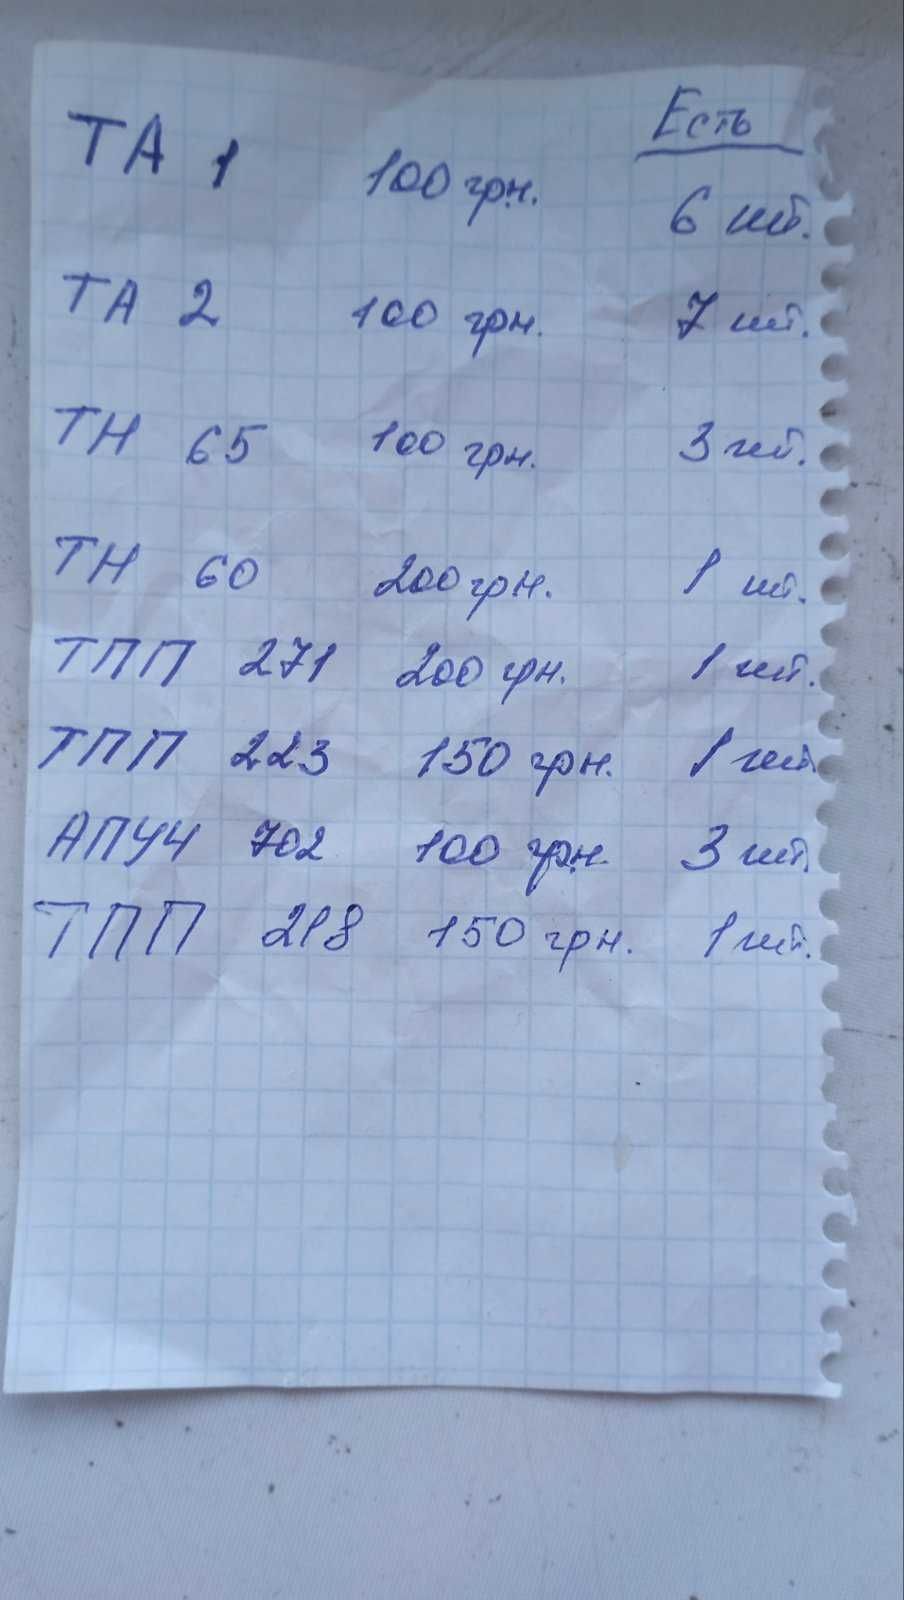 Есть
ТА 1 100 грн. 6 шт.
ТА 2 100 грн. 7 шт.
ТН 65 100 грн. 3 шт.
ТН 60 200 грн. 1 шт.
ТПП 271 200 грн. 1 шт.
ТПП 223 150 грн. 1 шт
АПУЧ 702 100 грн. 3 шт.
ТПП 218 150 грн. 1 шт.